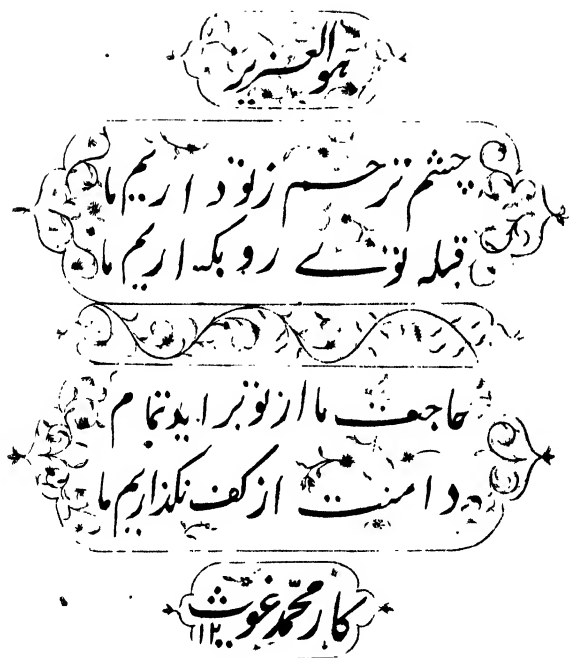 هوالعزیز
چشم ترحم ز تو داریم ما
قبله توے رو بکه اریم ما
حاجت ما از تو بر اید تمام
دامنت از کف نکذاریم ما
کار محمّد غوث